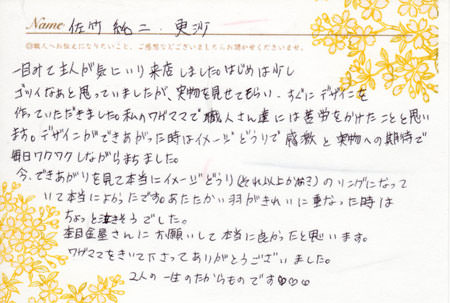 Name 佐竹 純二・恵沙
◎職人へお伝えになりたいこと、ご感想などございましたらお聞かせくださいませ。
一目みて主人が気にいり来店しました。はじめは少し
ゴツイなあと思っていましたが、実物を見せてもらい、すぐにデザインを
作っていただきました。私のワガママで職人さん達には苦労をかけたことと思い
ます。デザインができあがった時はイメージどうりで感激と実物への期待で
毎日ワクワクしながらまちました。
今、できあがりを見て本当にイメージどうり(それ以上かあさ)のリングになって
いて本当によかったです。あたたかい羽がきれいに重なった時は
ちょっと泣きそうでした。
杢目金屋さんにお願いして本当に良かったと思います。
ワガママをきいて下さってありがとうございました。
2人の一生のたからものです♡♡♡